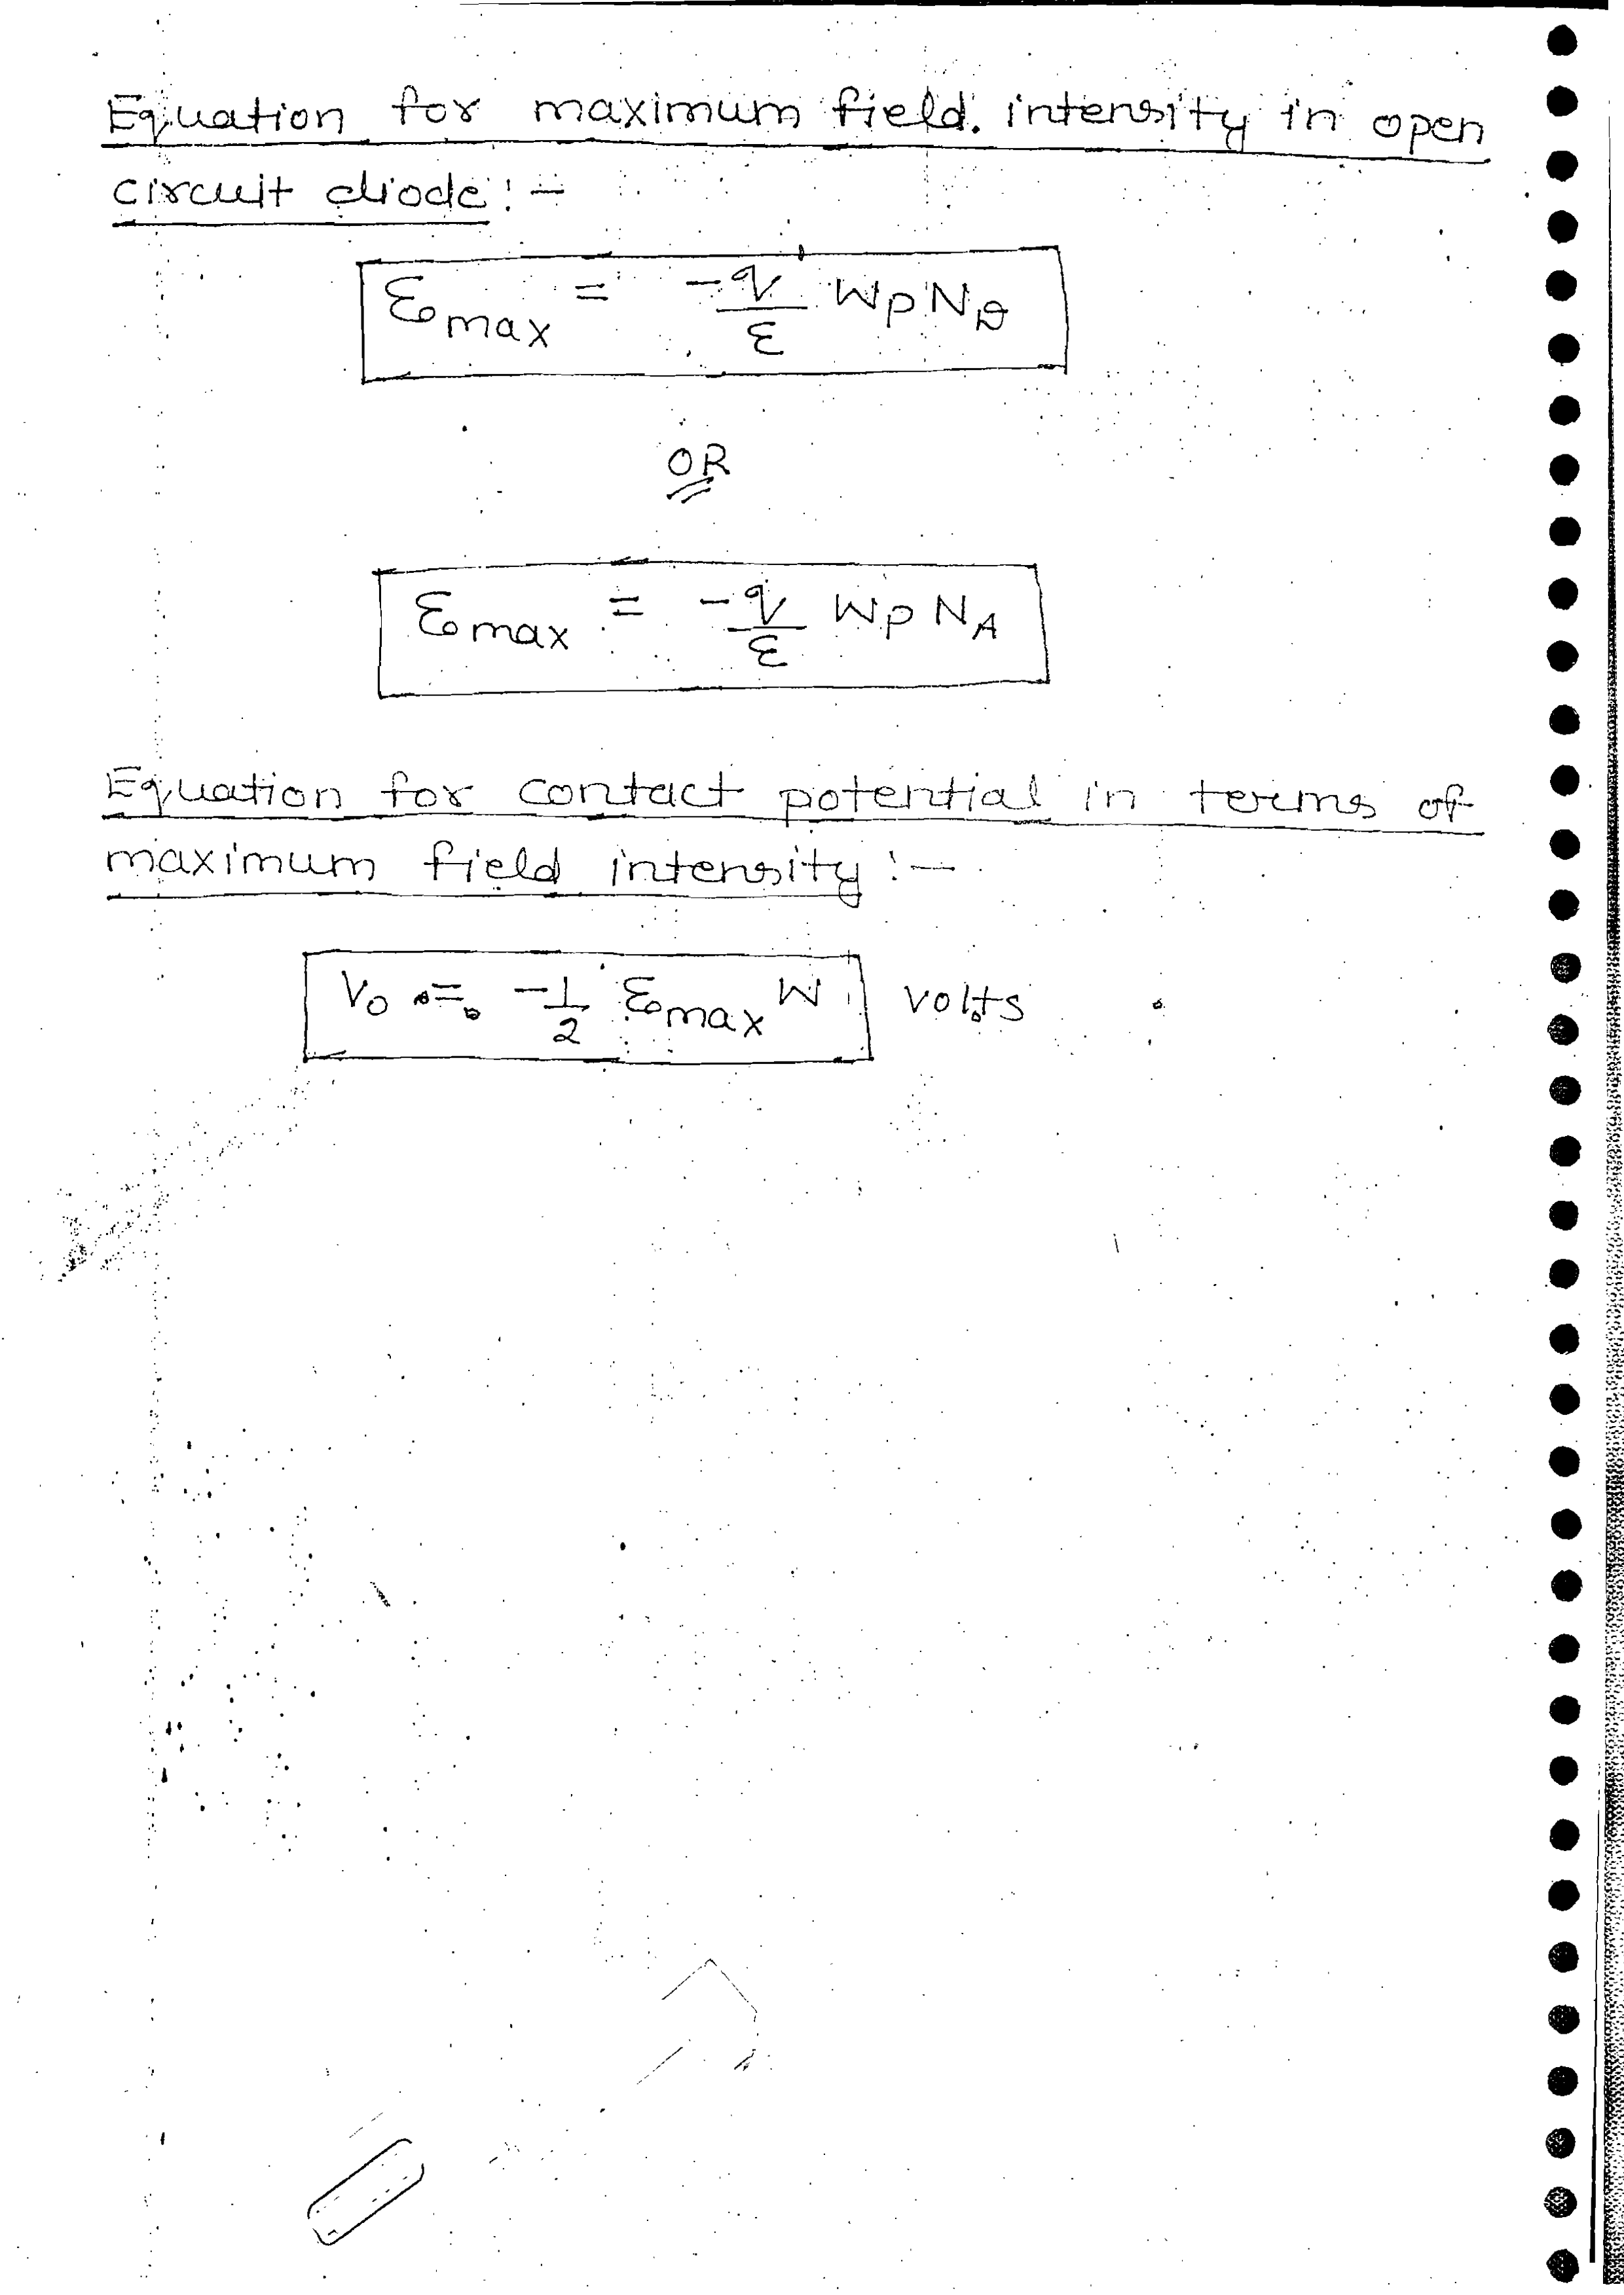 Equation for maximum field. intensity in open
circuit diode :-
Ɛo max = -q/ε Wp ND
OR
Ɛo max = -q/ε Wp NA
Equation for contact potential in terms of
maximum field intensity :-
Vo = -1/2 Ɛo max W volts